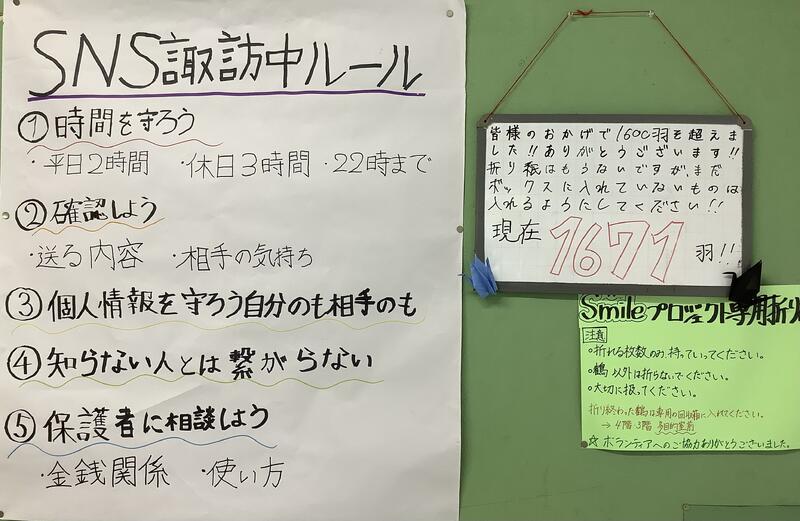 SNS諏訪中ルール
①時間を守ろう
・平日2時間 ・休日3時間 ・22時まで
②確認しよう
・送る内容 ・相手の気持ち
③個人情報を守ろう自分のも相手のも
④知らない人とは繋がらない
⑤保護者に相談しよう
・金銭関係 ・使い方
皆様のおかげで1600羽を超えま
した!!ありがとうございます!!
折り紙はもうないですが、まだ
ボックスに入れていないものは
入れるようにしてください!!
現在1671羽!!
Smileプロジェクト専用折り
注意
○折れる枚数のみ、持っていってください。
○鶴以外は折らないでください。
○大切に扱ってください。
折り終わった鶴は専用の回収箱に入れてください。
→4階3階 多目的室前
☆ボランティアへのご協力ありがとうございました。